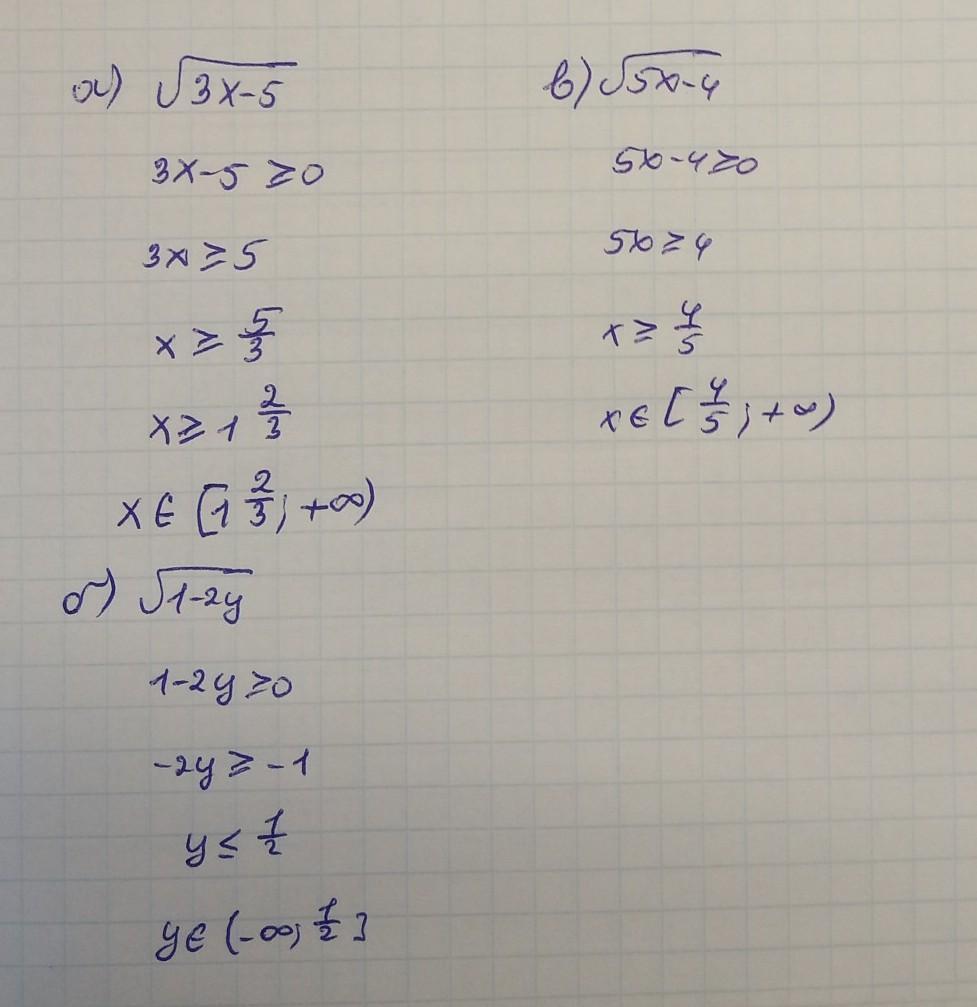 а) √3x-5
3x-5 ≥ 0
3x ≥ 5
x ≥ 5/3
x ≥ 1 2/3
x ∈ [1 2/3; +∞)
б) √1-2y
1-2y ≥ 0
-2y ≥ -1
y ≤ 1/2
y ∈ (-∞; 1/2]
в) √5x-4
5x-4 ≥ 0
5x ≥ 4
x ≥ 4/5
x ∈ [4/5; +∞)